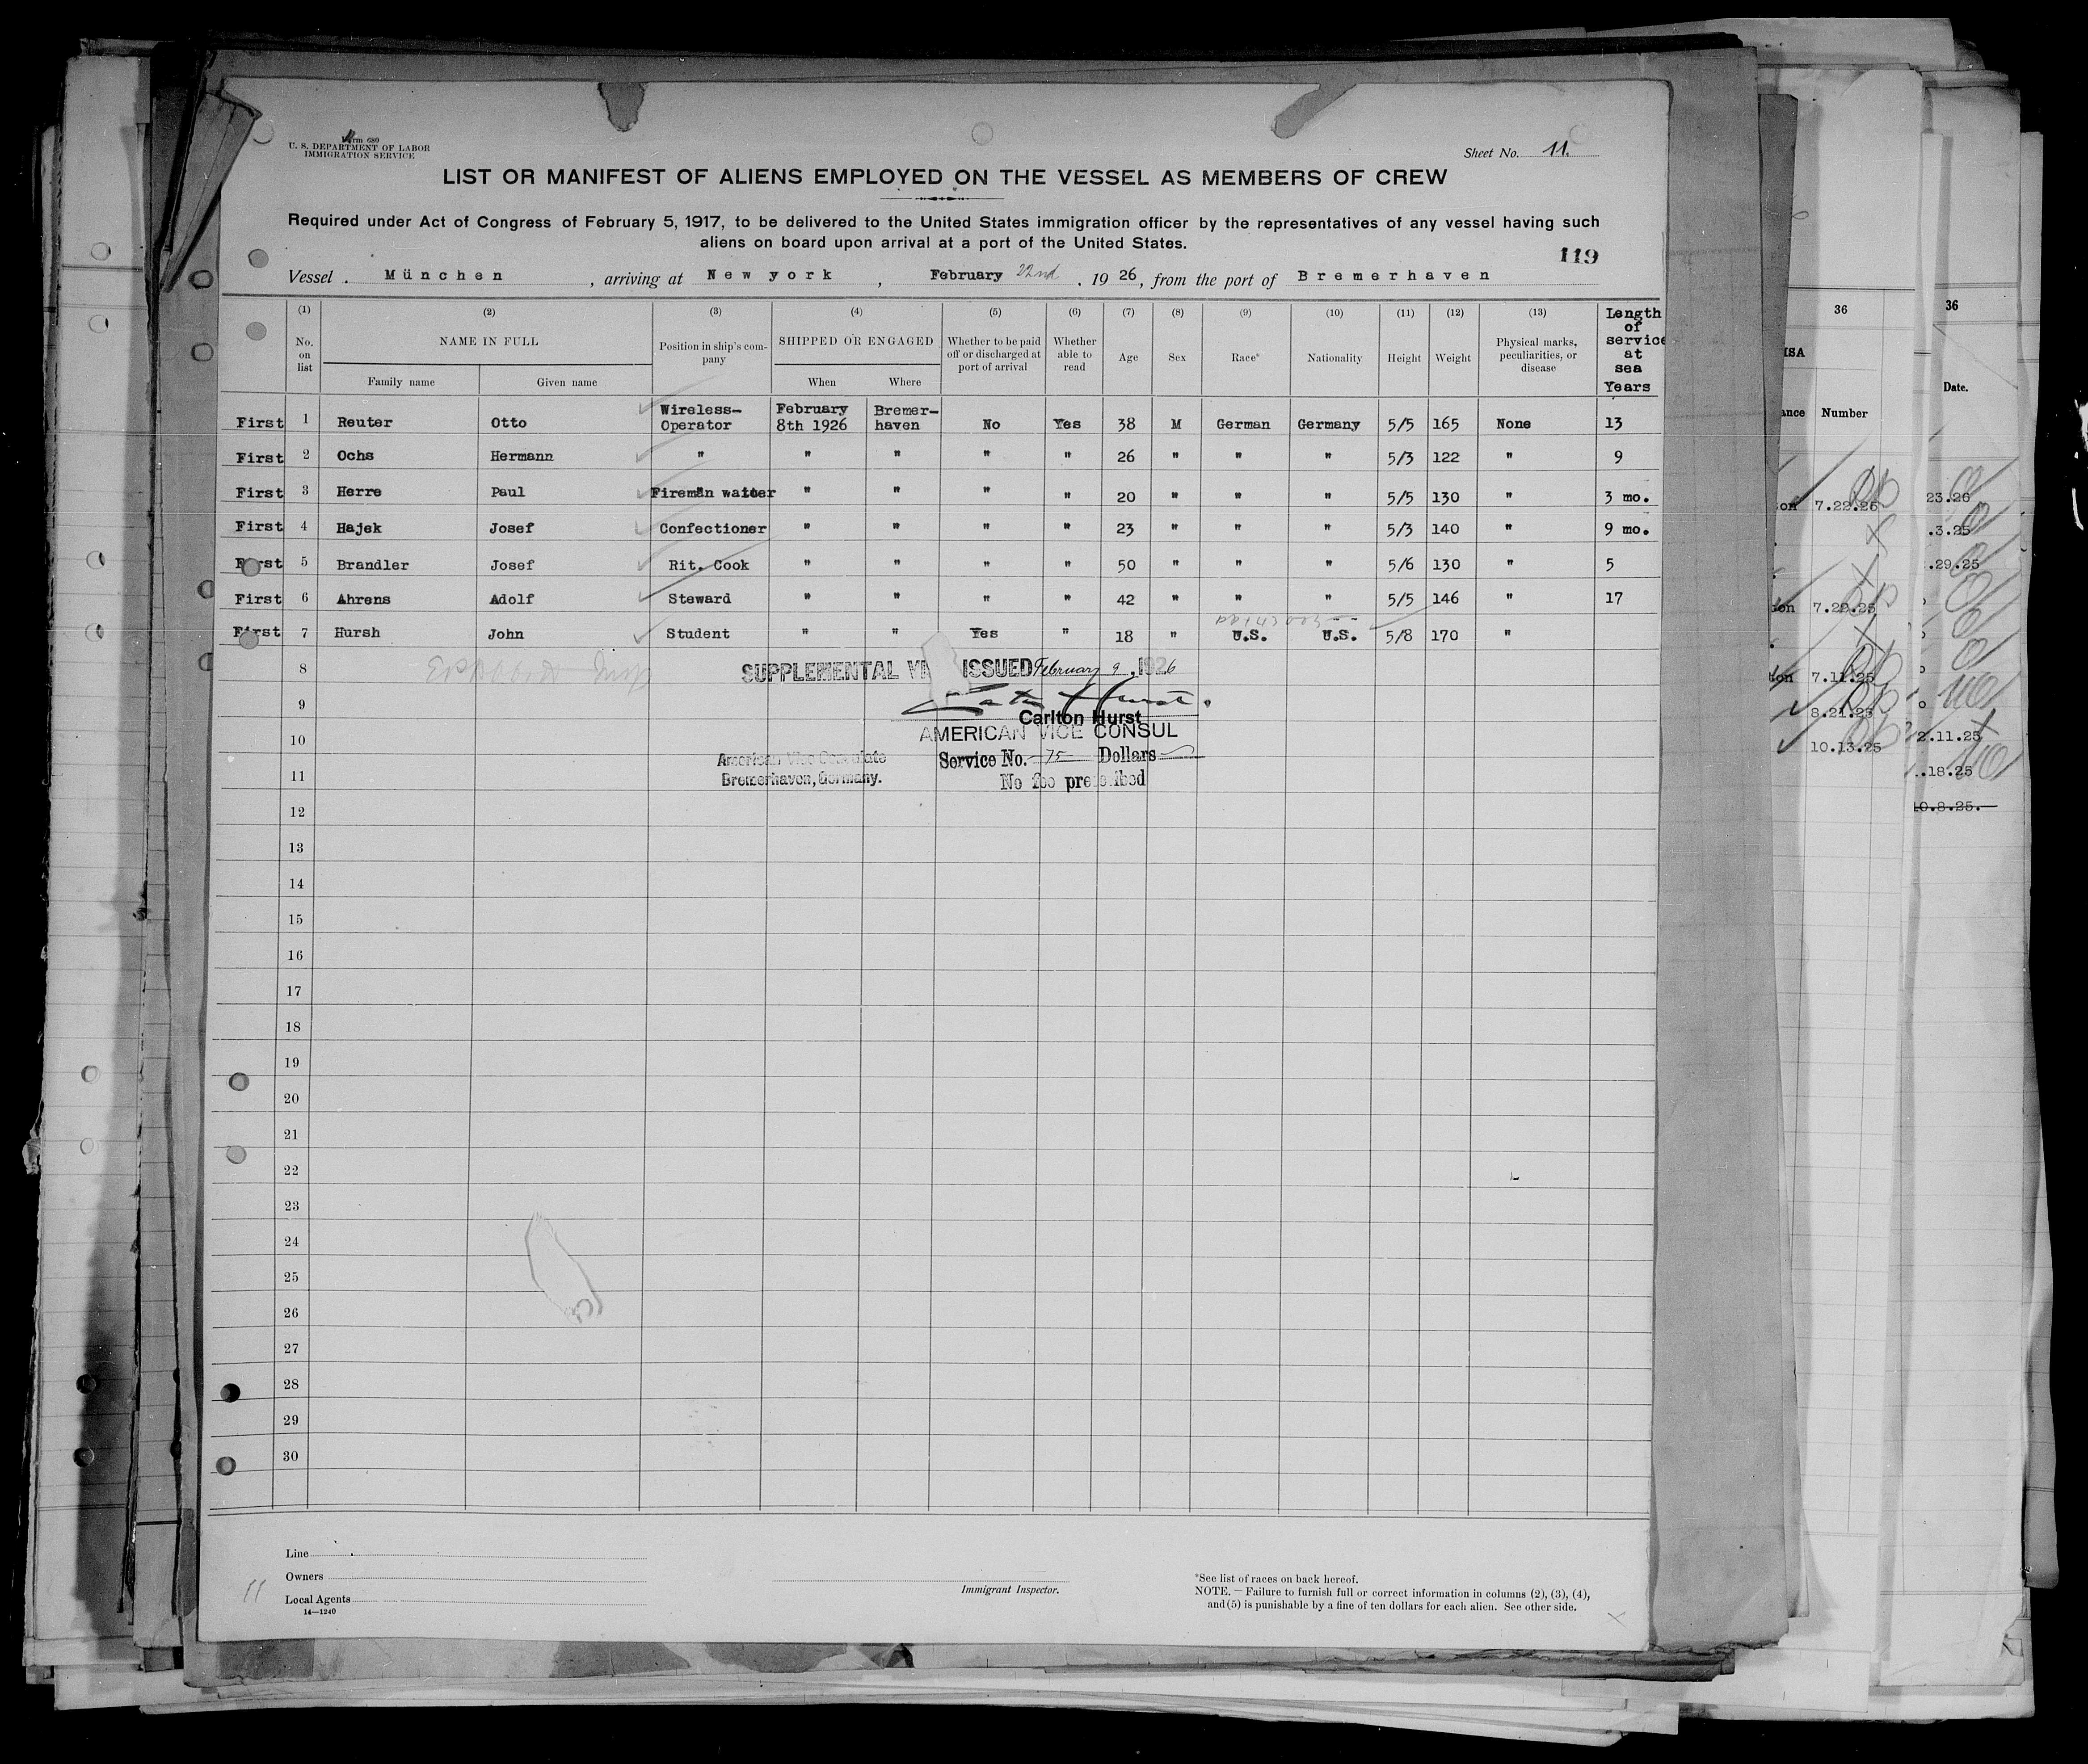 Form 689
U. S. DEPARTMENT OF LABOR
IMMIGRATION SERVICE
Sheet No. 11.
LIST OR MANIFEST OF ALIENS EMPLOYED ON THE VESSEL AS MEMBERS OF CREW
Required under Act of Congress of February 5, 1917, to be delivered to the United States immigration officer by the representatives of any vessel having such
aliens on board upon arrival at a port of the United States.
119
Vessel München, arriving at New york, February 22nd, 1926, from the port of Bremerhaven
(1) (2) (3) (4) (5) (6) (7) (8) (9) (10) (11) (12) (13) Length of service at sea Years
No. on list NAME IN FULL Position in ship's company SHIPPED OR ENGAGED Whether to be paid off or discharged at port of arrival Whether able to read Age Sex Race* Nationality Height Weight Physical marks, peculiarities, or disease
Family name Given name When Where
First 1 Reuter Otto Wireless-Operator February 8th 1926 Bremer-haven No Yes 38 M German Germany 5/5 165 None 13
First 2 Ochs Hermann " " " " " 26 " " " 5/3 122 " 9
First 3 Herre Paul Fireman waiter " " " " 20 " " " 5/5 130 " 3 mo.
First 4 Hajek Josef Confectioner " " " " 23 " " " 5/3 140 " 9 mo.
First 5 Brandler Josef Rit. Cook " " " " 50 " " " 5/6 130 " 5
First 6 Ahrens Adolf Steward " " " " 42 " " " 5/5 146 " 17
First 7 Hursh John Student " " Yes " 18 " U.S. U.S. 5/8 170 "
8 SUPPLEMENTAL ISSUED February 9, 1926
9
Carlton Hurst
10 AMERICAN VICE CONSUL
American Vice Consulate Service No. 75 Dollars
11 Bremerhaven, Germany. No fee prescribed
12
13
14
15
16
17
18
19
20
21
22
23
24
25
26
27
28
29
30
Line
Owners
Local Agents
14—1240
11
Immigrant Inspector.
*See list of races on back hereof.
NOTE.—Failure to furnish full or correct information in columns (2), (3), (4),
and (5) is punishable by a fine of ten dollars for each alien. See other side.
36
Number
7.22.26
7.22.25
7.11.25
8.21.25
10.13.25
36
Date.
23.26
.3.25
.29.25
2.11.25
.18.25
10.8.25.